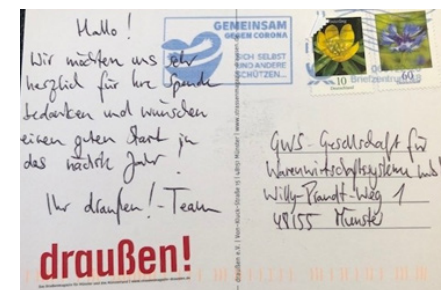 Hallo!
Wir möchten uns sehr
herzlich für Ihre Spende
bedanken und wünschen
einen guten Start in
das nächste Jahr!
Ihr draußen!-Team
draußen!
GEMEINSAM
GEGEN CORONA
SICH SELBST
UND ANDERE
SCHÜTZEN...
Briefzentrum
10
Deutschland
60
GWS-Gesellschaft für
Warenwirtschaftssysteme mbH
Willy-Brandt-Weg 1
48155 Münster